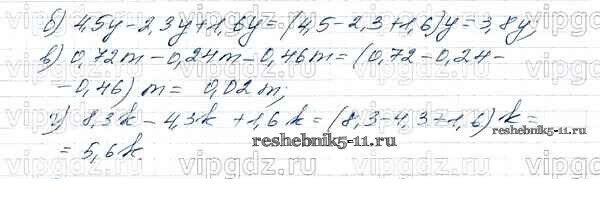 б) 4,5y-2,3y+1,6y=(4,5-2,3+1,6)y=3,8y;
в) 0,72m-0,24m-0,46m=(0,72-0,24-
-0,46)m= 0,02m;
г) 8,3k-4,3k+1,6k=(8,3-4,3+1,6)k=
reshebnik5-11.ru
reshebnik5-11.ru
=5,6k.
vipgdz.ru